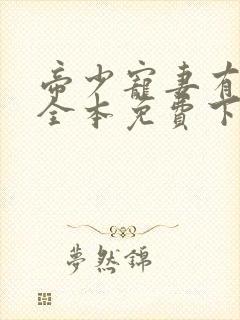 帝少寵妻有
全本免費下
夢然錦